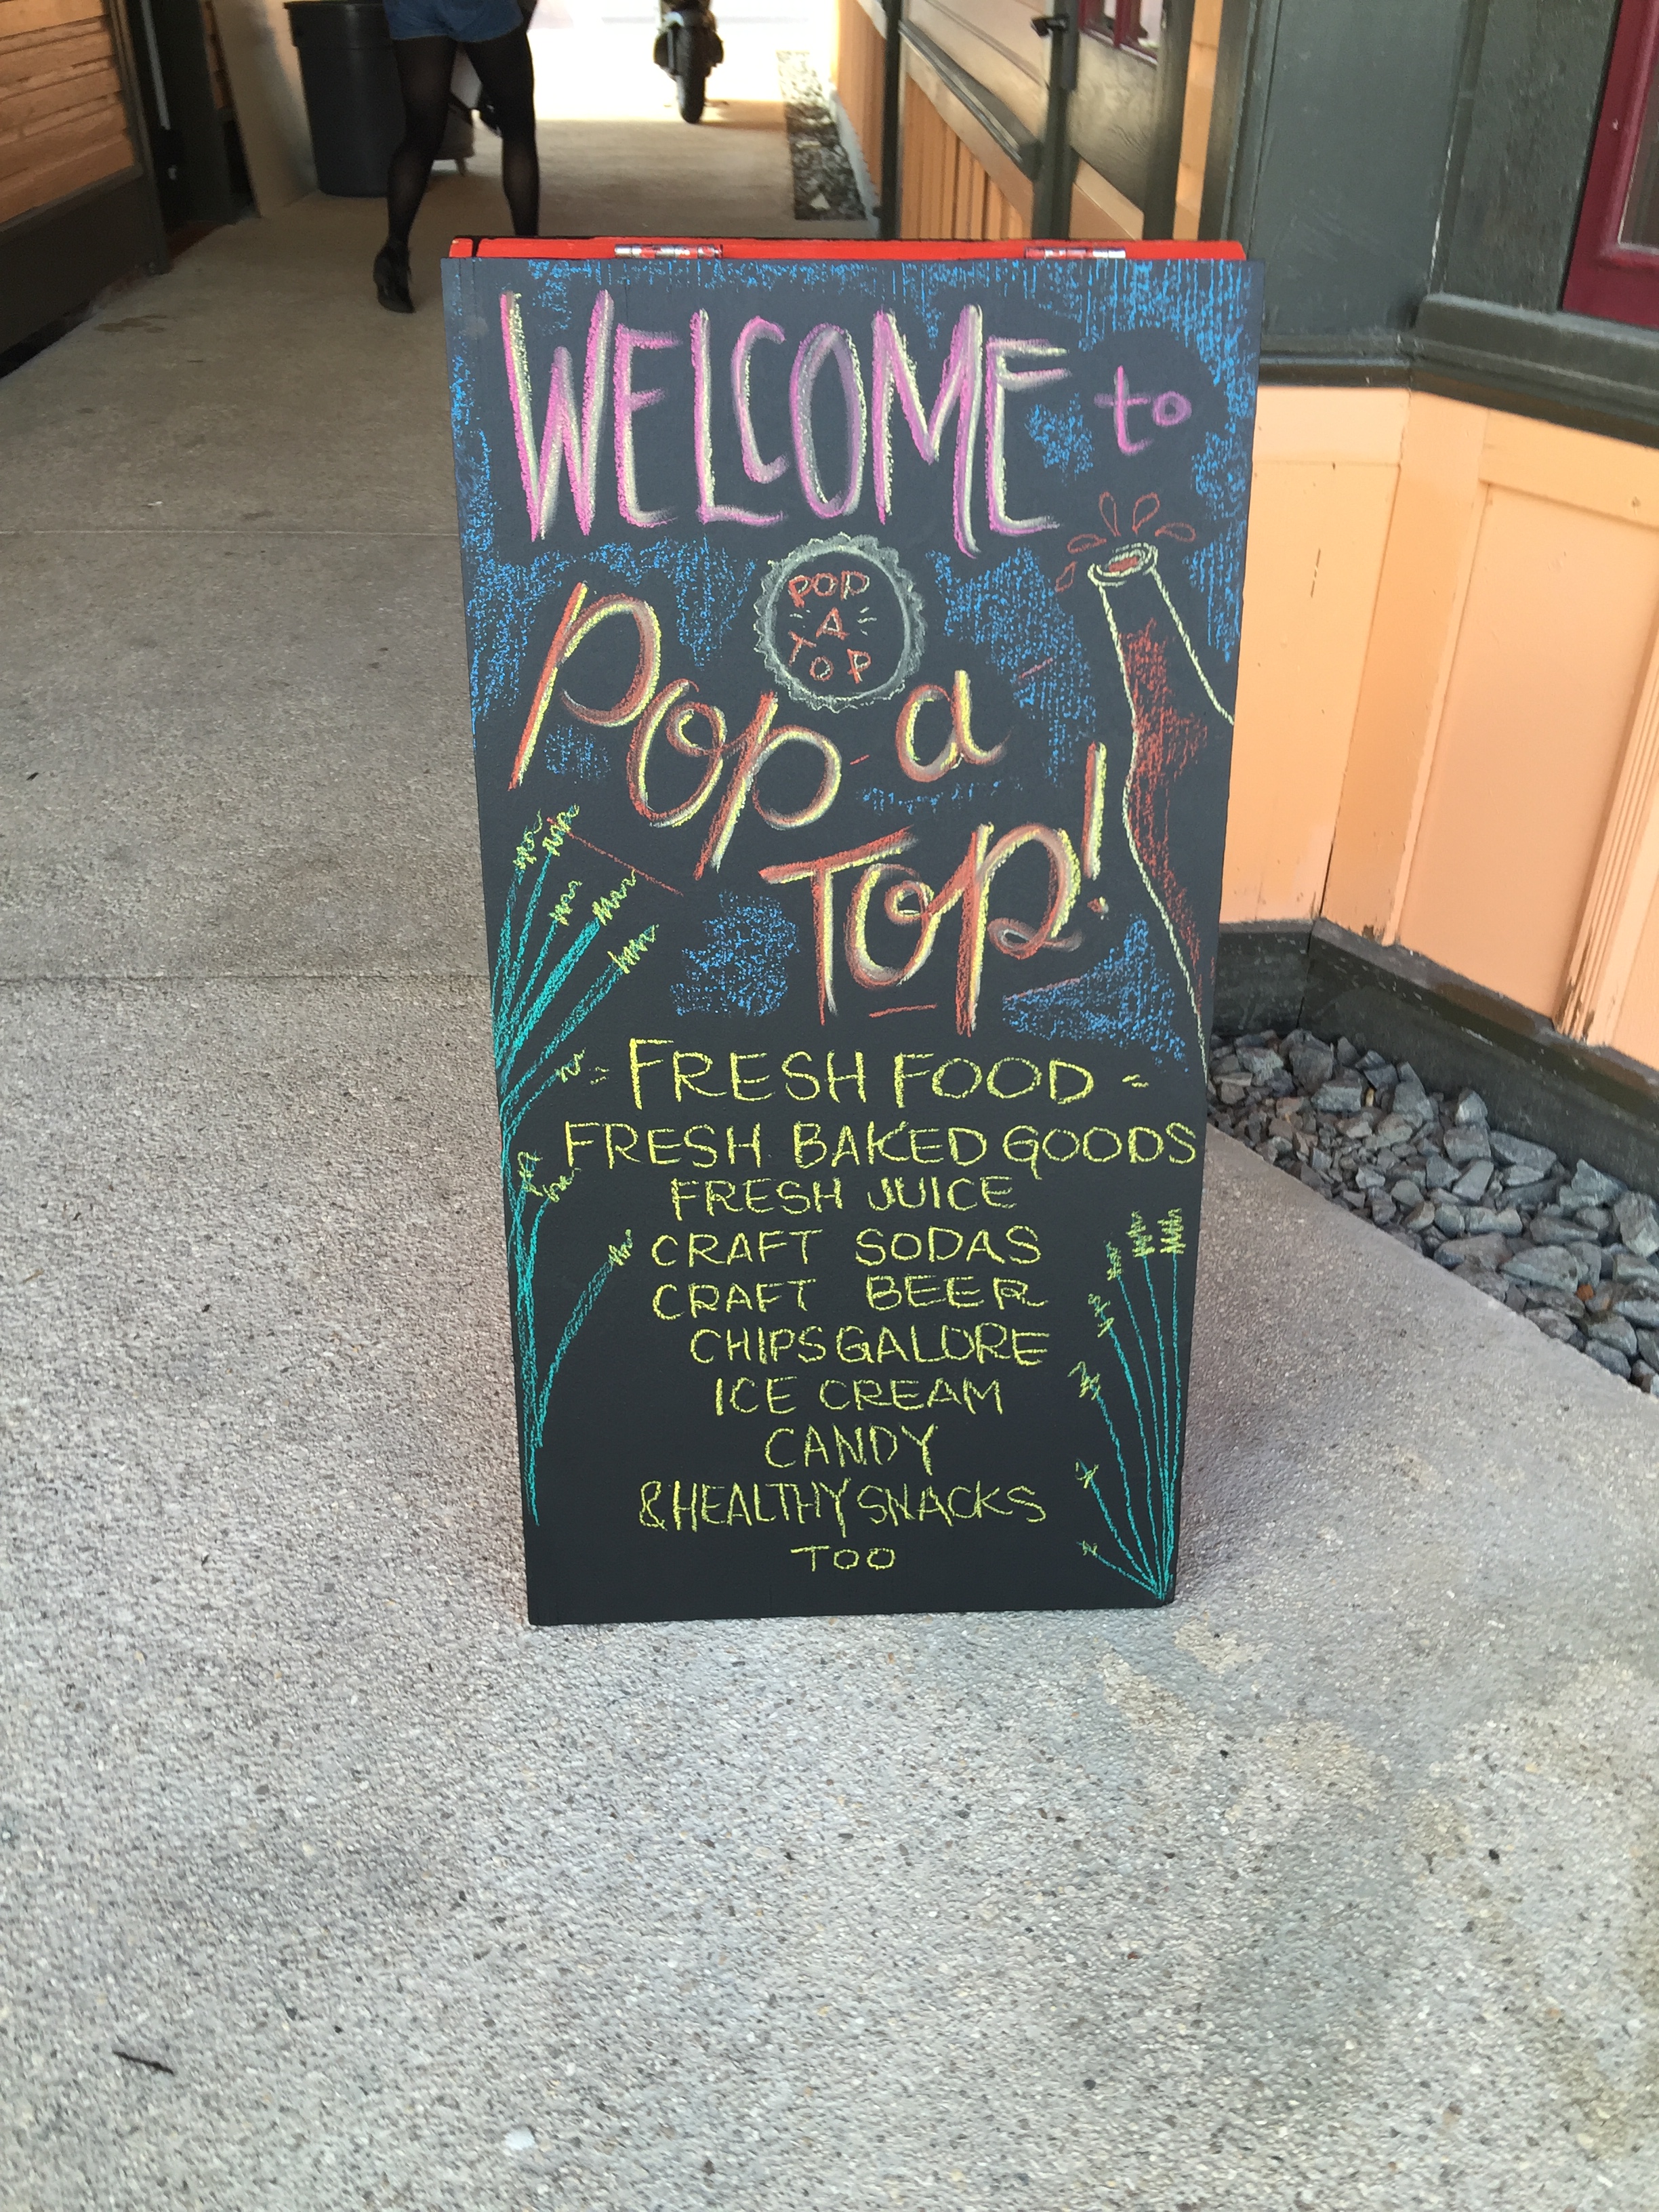 WELCOME to
POP
A
TOP
Pop a
Top!
FRESH FOOD
FRESH BAKED GOODS
FRESH JUICE
CRAFT SODAS
CRAFT BEER
CHIPS GALORE
ICE CREAM
CANDY
& HEALTHY SNACKS
TOO